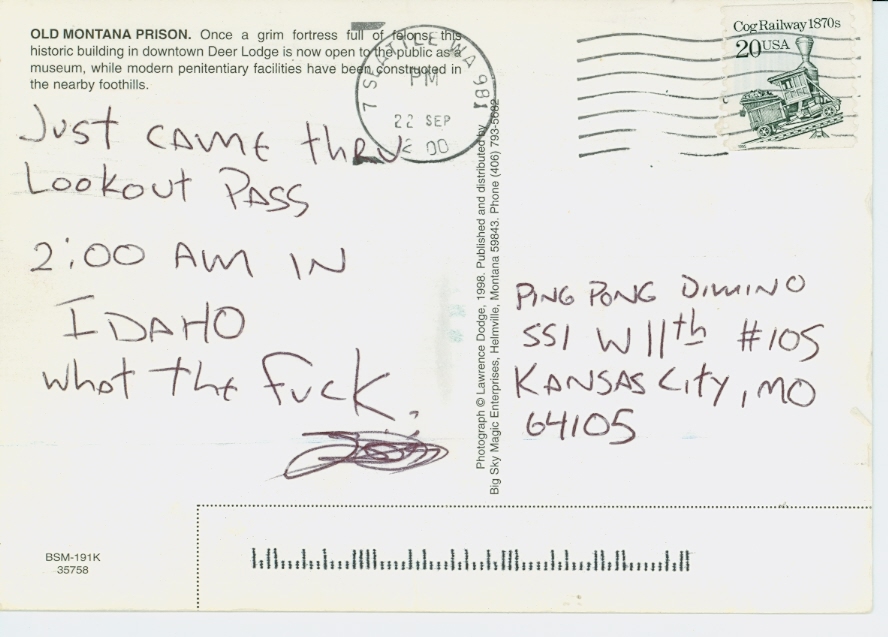 OLD MONTANA PRISON. Once a grim fortress full of felons, this
historic building in downtown Deer Lodge is now open to the public as a
museum, while modern penitentiary facilities have been constructed in
the nearby foothills.
Just came thru
Lookout Pass
2:00 AM IN
IDAHO
what the fuck.
SEATTLE WA 981
PM
22 SEP
Cog Railway 1870s
20 USA
Photograph © Lawrence Dodge, 1998. Published and distributed by
Big Sky Magic Enterprises, Helmville, Montana 59843. Phone (406) 793-5682
PING PONG DIMINO
551 W 11th #105
KANSAS CITY, MO
64105
BSM-191K
35758